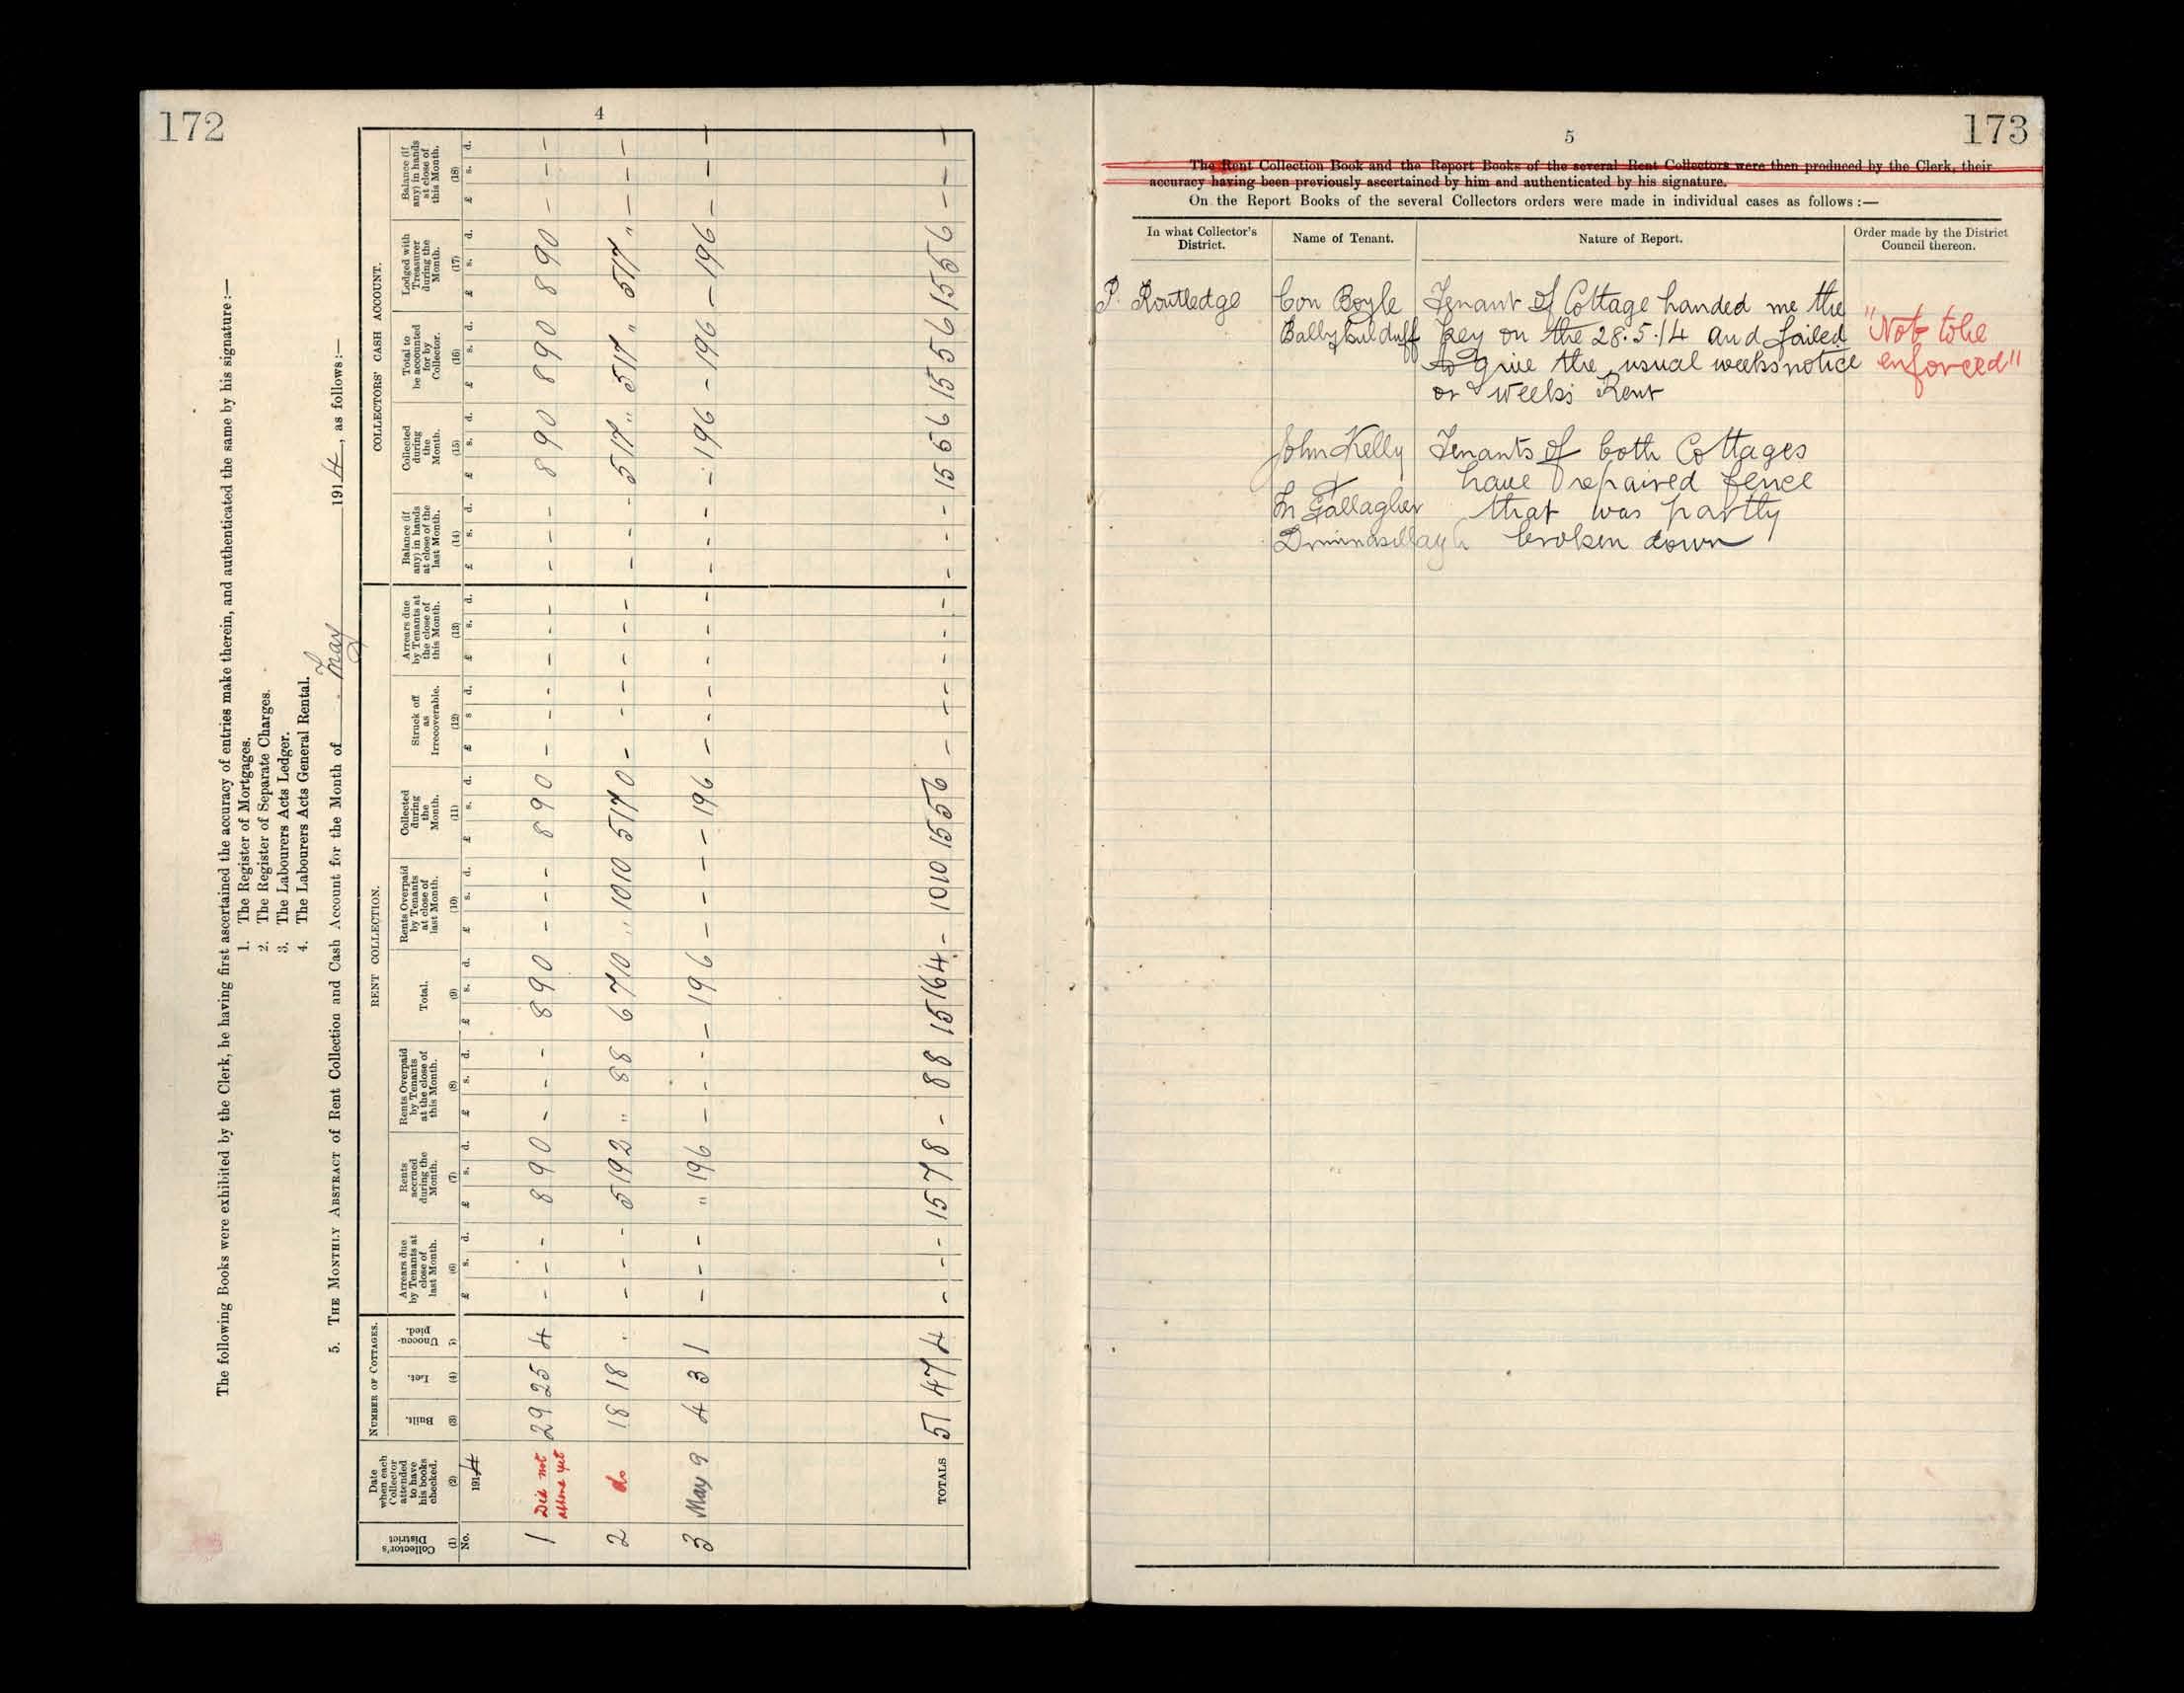 172
4
The following Books were exhibited by the Clerk, he having first ascertained the accuracy of entries make therein, and authenticated the same by his signature :—
1. The Register of Mortgages.
2. The Register of Separate Charges.
3. The Labourers Acts Ledger.
4. The Labourers Acts General Rental.
5. THE MONTHLY ABSTRACT of Rent Collection and Cash Account for the Month of May 1914, as follows:—
NUMBER OF COTTAGES. RENT COLLECTION. COLLECTORS' CASH ACCOUNT.
Collector's District (1) No.
Date when each Collector attended to have his books checked. (2) 1914
Built. (3)
Let. (4)
Unoccupied. (5)
Arrears due by Tenants at close of last Month. (6) £ s. d.
Rents accrued during the Month. (7) £ s. d.
Rents Overpaid by Tenants at the close of this Month. (8) £ s. d.
Total. (9) £ s. d.
Rents Overpaid by Tenants at close of last Month. (10) £ s. d.
Collected during the Month. (11) £ s. d.
Struck off as Irrecoverable. (12) £ s d.
Arrears due by Tenants at the close of this Month. (13) £ s. d.
Balance (if any) in hands at close of the last Month. (14) £ s. d.
Collected during the Month. (15) £ s. d.
Total to be accounted for by Collector. (16) £ s. d.
Lodged with Treasurer during the Month. (17) £ s. d.
Balance (if any) in hands at close of this Month. (18) £ s. d.
1 Did not attend yet 29 25 4 - - - 8 9 0 - - - 8 9 0 - - - 8 9 0 - - - - - - - - - 8 9 0 8 9 0 8 9 0 - - -
2 do 18 18 " - - - 5 19 2 " 8 8 6 7 10 " 10 10 5 17 0 - - - - - - - - - 5 17 " 5 17 " 5 17 " - - -
3 May 9 4 3 1 - - - " 19 6 - - - - 19 6 - - - - 19 6 - - - - - - - - - - 19 6 - 19 6 - 19 6 - - -
TOTALS 51 47 4 - - - 15 7 8 - 8 8 15 16 4 - 10 10 15 5 6 - - - - - - - - - 15 5 6 15 5 6 15 5 6 - - -
5
173
The Rent Collection Book and the Report Books of the several Rent Collectors were then produced by the Clerk, their
accuracy having been previously ascertained by him and authenticated by his signature.
On the Report Books of the several Collectors orders were made in individual cases as follows :—
In what Collector's District. Name of Tenant. Nature of Report. Order made by the District Council thereon.
P. Routledge Con Boyle Tenant of Cottage handed me the
key on the 28.5.14 and failed "Not to be
to give the usual weeks notice enforced"
or weeks Rent
John Kelly Tenants of both Cottages
& have repaired fence
Gallagher that was partly
broken down